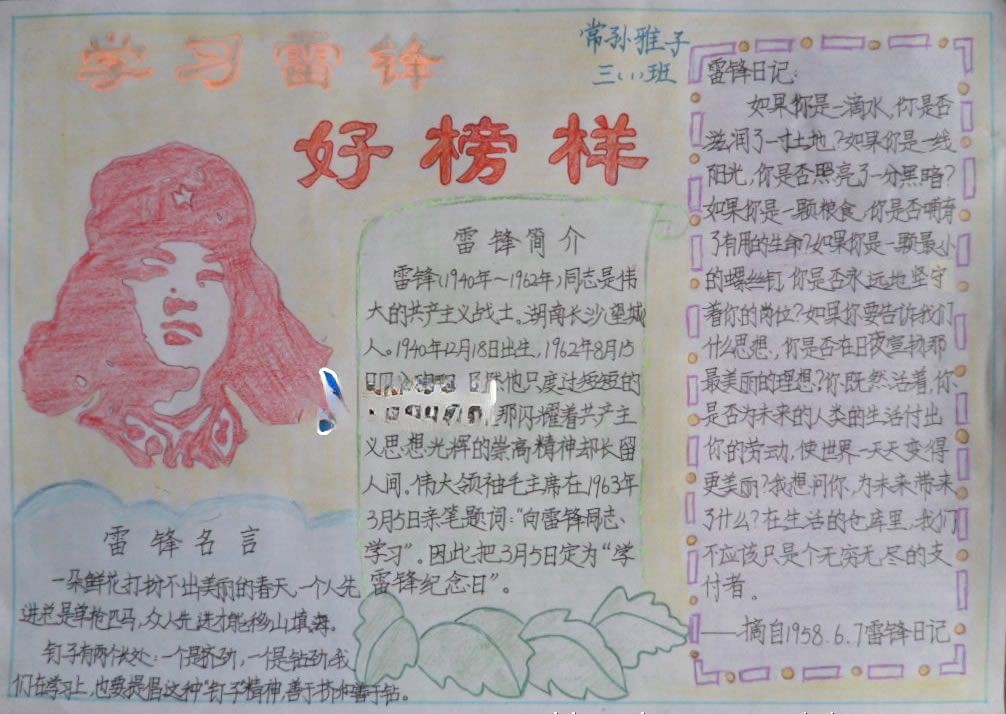 学习雷锋
好榜样
常孙雅子
三(1)班
雷锋简介
雷锋(1940年～1962年)同志是伟
大的共产主义战士。湖南长沙望城
人。1940年12月18日出生,1962年8月15
他只度过短短的
那闪耀着共产主
义思想光辉的崇高精神却长留
人间。伟大领袖毛主席在1963年
3月5日亲笔题词:“向雷锋同志
学习”。因此把3月5日定为“学
雷锋纪念日”。
雷锋名言
一朵鲜花打扮不出美丽的春天,一个人先
进总是单枪匹马,众人先进才能移山填海。
钉子有两个长处:一个是挤劲,一个是钻劲,我
们在学习上,也要提倡这种“钉子”精神,善于挤和善于钻。
雷锋日记:
如果你是一滴水,你是否
滋润了一寸土地?如果你是一线
阳光,你是否照亮了一分黑暗?
如果你是一颗粮食,你是否哺育
了有用的生命?如果你是一颗最小
的螺丝钉,你是否永远地坚守
着你的岗位?如果你要告诉我们
什么思想,你是否在日夜宣扬那
最美丽的理想?你既然活着,你
是否为未来的人类的生活付出
你的劳动,使世界一天天变得
更美丽?我想问你,为未来带来
了什么?在生活的仓库里,我们
不应该只是个无穷无尽的支
付者。
——摘自1958.6.7雷锋日记